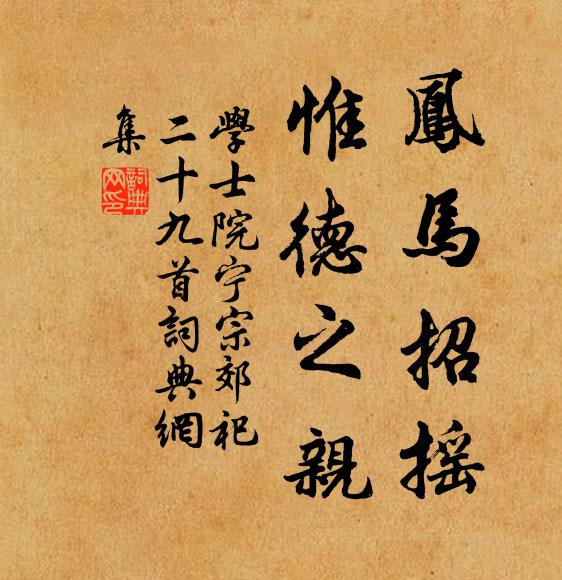 鳳馬招摇
惟德之親
學士院宁宗郊祀
二十九首詞典網
集
詞典網印